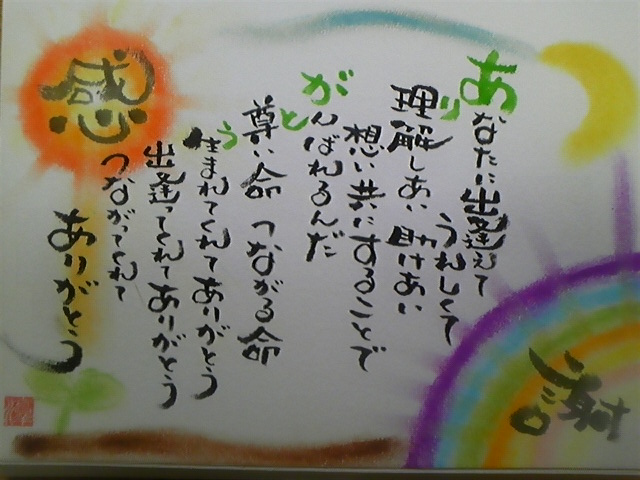 あなたに出逢えて
うれしくて
り
理解しあい 助けあい
想い共にすることで
がんばれるんだ
と
尊い命 つながる命
う
生まれてくれてありがとう
出逢ってくれてありがとう
つながってくれて
ありがとう
感
謝